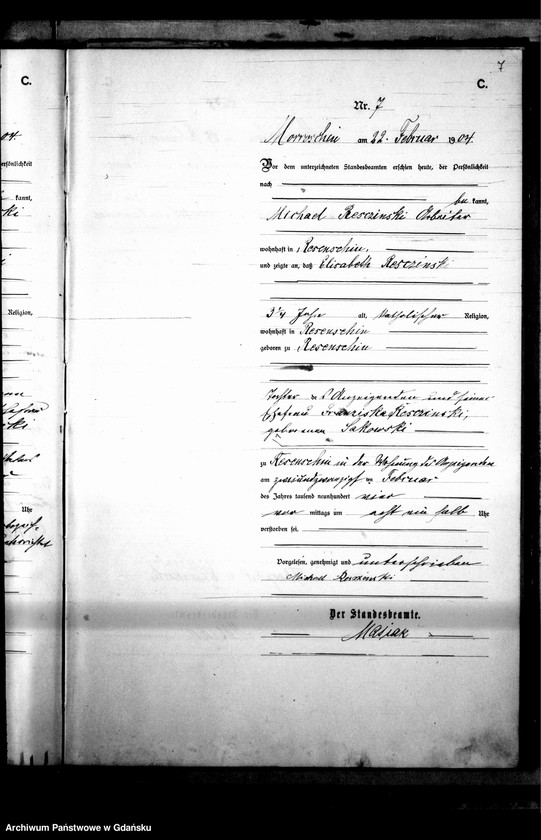 7
C.
C.
Nr. 7
am 22. Februar 1904.
04.
Vor dem unterzeichneten Standesbeamten erschien heute, der Persönlichkeit
ersönlichkeit
nach
be kannt,
kannt,
Michael Resczinski Arbeiter
ki
wohnhaft in Resenschin,
und zeigte an, daß Elisabeth Resczinski
3/4 Jahr alt, katholischer Religion,
Religion,
wohnhaft in Resenschin
geboren zu Resenschin
Tochter des Anzeigenden und seiner
Ehefrau Franziska Resczinski,
ski
geborenen Sakowski
zu Resenschin in der Wohnung des Anzeigenden
am zweiundzwanzigsten Februar
des Jahres tausend neunhundert vier
vor mittags um acht ein halb Uhr
Uhr
verstorben sei.
Vorgelesen, genehmigt und unterschrieben
Michael Resczinski
Der Standesbeamte.
Archiwum Państwowe w Gdańsku